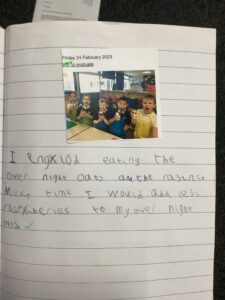 Friday 24 February 2023
to evaluate
I engxiod eating the
over night oats an the rasens
Next time I would add less
rasey beries to my over night
oats